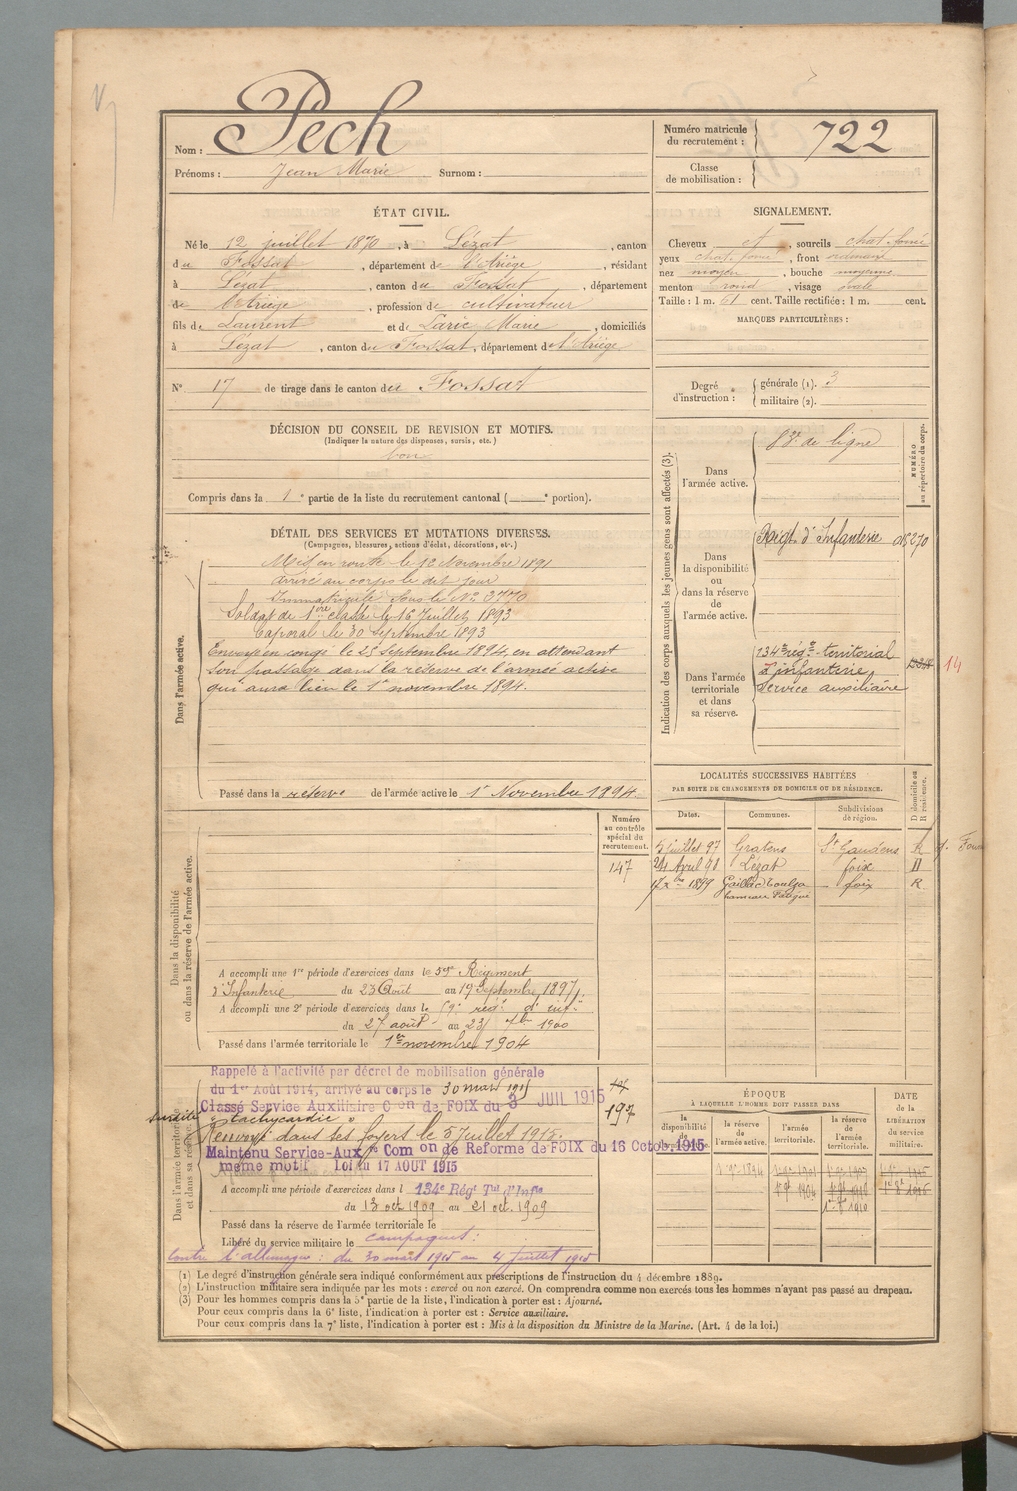 Nom : Pech
Prénoms : Jean Marie Surnom :
Numéro matricule
du recrutement : 722
Classe
de mobilisation :
ÉTAT CIVIL.
Né le 12 juillet 1870, à Lézat, canton
du Fossat, département de l'Ariège, résidant
à Lézat, canton du Fossat, département
de l'Ariège, profession de cultivateur
fils de Laurent et de Laric Marie, domiciliés
à Lézat, canton du Fossat, département de l'Ariège
SIGNALEMENT.
Cheveux et, sourcils chat. foncé
yeux chat. foncé, front ordinaire
nez moyen, bouche moyenne
menton rond, visage ovale
Taille : 1 m. 61 cent. Taille rectifiée : 1 m. cent.
MARQUES PARTICULIÈRES :
N° 17 de tirage dans le canton du Fossat
Degré
d'instruction :
générale (1). 3
militaire (2).
DÉCISION DU CONSEIL DE REVISION ET MOTIFS.
(Indiquer la nature des dispenses, sursis, etc.)
bon
Compris dans la 1e partie de la liste du recrutement cantonal ( e portion).
DÉTAIL DES SERVICES ET MUTATIONS DIVERSES.
(Campagnes, blessures, actions d'éclat, décorations, etc.)
Dans l'armée active.
Mis en route le 12 Novembre 1891
arrivé au corps le dit jour
Immatriculé sous le No 3770
Soldat de 1ère classe le 16 Juillet 1893
Caporal le 30 Septembre 1893
Envoyé en congé le 25 Septembre 1894, en attendant
son passage dans la réserve de l'armée active
qui aura lieu le 1er novembre 1894.
Passé dans la réserve de l'armée active le 1er Novembre 1894.
Indication des corps auxquels les jeunes gens sont affectés (3).
NUMÉRO
au répertoire du corps.
Dans
l'armée active.
de ligne
Dans
la disponibilité
ou
dans la réserve
de
l'armée active.
Régt d'Infanterie
Dans l'armée
territoriale
et dans
sa réserve.
134e rég. territorial
d'infanterie
Service auxiliaire
14
LOCALITÉS SUCCESSIVES HABITÉES
PAR SUITE DE CHANGEMENTS DE DOMICILE OU DE RÉSIDENCE.
D domicile ou
R résidence.
Dates. Communes. Subdivisions
de région.
5 juillet 97 Gratens St Gaudens R
24 Avril 98 Lézat foix D
17 Xbre 1899 Gaillac Toulza foix R
hameau
Dans la disponibilité
ou dans la réserve de l'armée active.
Numéro
au contrôle
spécial du
recrutement.
147
A accompli une 1re période d'exercices dans le 59e Régiment
d'Infanterie du 23 Août au 19 Septembre 1897.
A accompli une 2e période d'exercices dans le 59e rég. d'inf.
du 27 août au 23 7bre 1900
Passé dans l'armée territoriale le 1er novembre 1904
Dans l'armée territoriale
et dans sa réserve.
Rappelé à l'activité par décret de mobilisation générale
du 1er Août 1914, arrivé au corps le 30 mars 1915
Classé Service Auxiliaire Con de FOIX du 3 JUIL 1915
surdité "tachycardie"
Renvoyé dans ses foyers le 5 Juillet 1915.
Maintenu Service-Auxre Comon de Reforme de FOIX du 16 Octob. 1915
même motif Loi du 17 AOUT 1915
A accompli une période d'exercices dans l 134e Régt Tal d'Infie
du 13 oct. 1909 au 21 oct. 1909
Passé dans la réserve de l'armée territoriale le
Libéré du service militaire le
campagnes :
Contre l'allemagne : du 30 mars 1915 au 4 Juillet 1915
197
ÉPOQUE
À LAQUELLE L'HOMME DOIT PASSER DANS
la
disponibilité
de
la réserve
de
l'armée active.
l'armée
territoriale.
la réserve
de
l'armée
territoriale.
DATE
de la
LIBÉRATION
du service
militaire.
(1) Le degré d'instruction générale sera indiqué conformément aux prescriptions de l'instruction du 4 décembre 1889.
(2) L'instruction militaire sera indiquée par les mots : exercé ou non exercé. On comprendra comme non exercés tous les hommes n'ayant pas passé au drapeau.
(3) Pour les hommes compris dans la 5e partie de la liste, l'indication à porter est : Ajourné.
Pour ceux compris dans la 6e liste, l'indication à porter est : Service auxiliaire.
Pour ceux compris dans la 7e liste, l'indication à porter est : Mis à la disposition du Ministre de la Marine. (Art. 4 de la loi.)